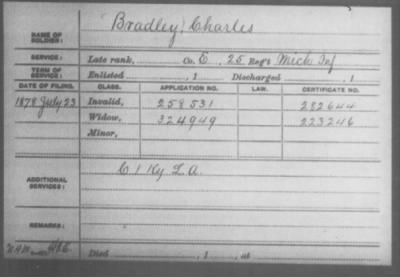 NAME OF SOLDIER: Bradley, Charles
SERVICE: Late rank, Co. E, 25 Reg't Mich Inf
TERM OF SERVICE: Enlisted , 1 Discharged , 1
DATE OF FILING. CLASS. APPLICATION NO. LAW. CERTIFICATE NO.
1878 July 23 Invalid, 259531 282644
Widow, 324949 223246
Minor,
ADDITIONAL SERVICES: C 1 Ky L.A.
REMARKS:
Died , 1 , at